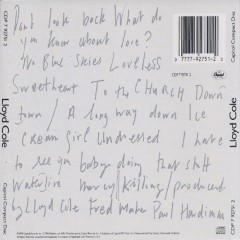 Don't look back What do
you know about love?
No Blue Skies Loveless
Sweetheart To the CHURCH Down
town / A long way down Ice
Cream Girl Undressed I hate
to see you baby doing that stuff
Waterline Mercy Killing / produced
by Lloyd Cole Fred Maher Paul Hardiman
CDP 7 92751 2
Lloyd Cole
Capitol Compact Disc
0 7777-92751-2
CDP 7 92751 2
Capitol Compact Disc
Lloyd Cole
CDP 7 92751 2